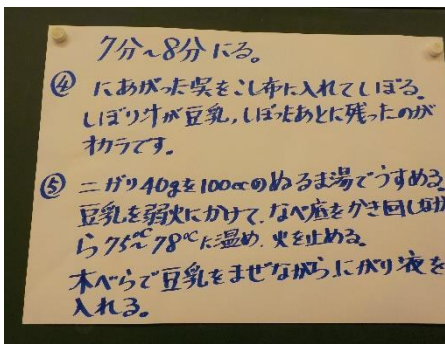 7分~8分にる。
④ にあがった呉をこし布に入れてしぼる。
しぼり汁が豆乳,しぼったあとに残ったのが
オカラです。
⑤ ニガリ40gを100ccのぬるま湯でうすめる
豆乳を弱火にかけて、なべ底をかき回しなが
ら75℃~78℃に温め、火を止める。
木べらで豆乳をまぜながら、にがり液を
入れる。